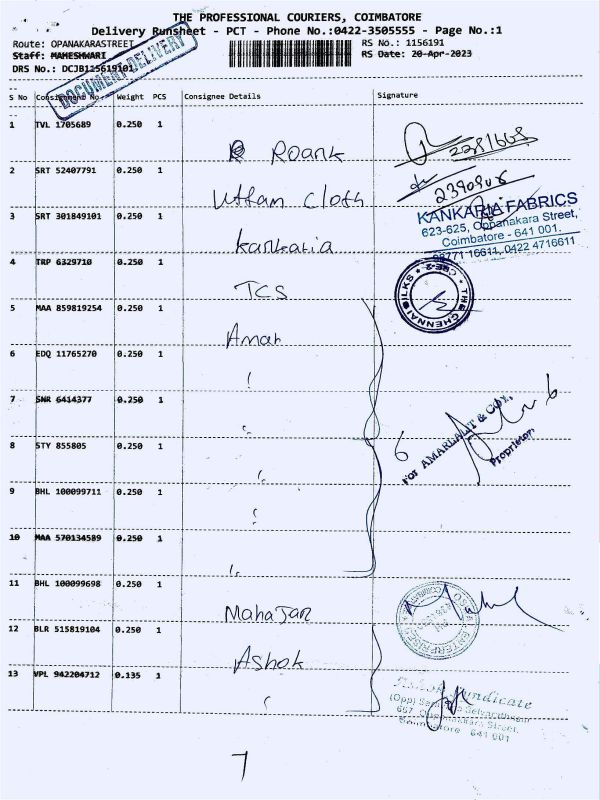 THE PROFESSIONAL COURIERS, COIMBATORE
Delivery Runsheet - PCT - Phone No.:0422-3505555 - Page No.:1
Route: OPANAKARASTREET RS No.: 1156191
Staff: MAHESHWARI RS Date: 20-Apr-2023
DRS No.: DCJB115619101
DOCUMENT DELIVERY
S No Consignment No. Weight PCS Consignee Details Signature
1 TVL 1705689 0.250 1
Roank 2281668
2 SRT 52407791 0.250 1
Uttam Cloth 2390908
3 SRT 301849101 0.250 1
Kankaria
KANKARIA FABRICS
623-625, Oppanakara Street,
Coimbatore - 641 001.
98771 16611, 0422 4716611
4 TRP 6329710 0.250 1
TCS
THE CHENNAI SILKS CBE-2
5 MAA 859819254 0.250 1
Amar
6 EDQ 11765270 0.250 1
7 SNR 6414377 0.250 1
6
For AMARLALIT & COY,
Proprietor.
8 STY 855805 0.250 1
9 BHL 100099711 0.250 1
10 MAA 570134589 0.250 1
11 BHL 100099698 0.250 1
Mahajan
ENTERPRISES
12 BLR 515819104 0.250 1
Ashok
13 VPL 942204712 0.135 1
Ashok Syndicate
657, Oppanakara Street,
Coimbatore - 641 001
7